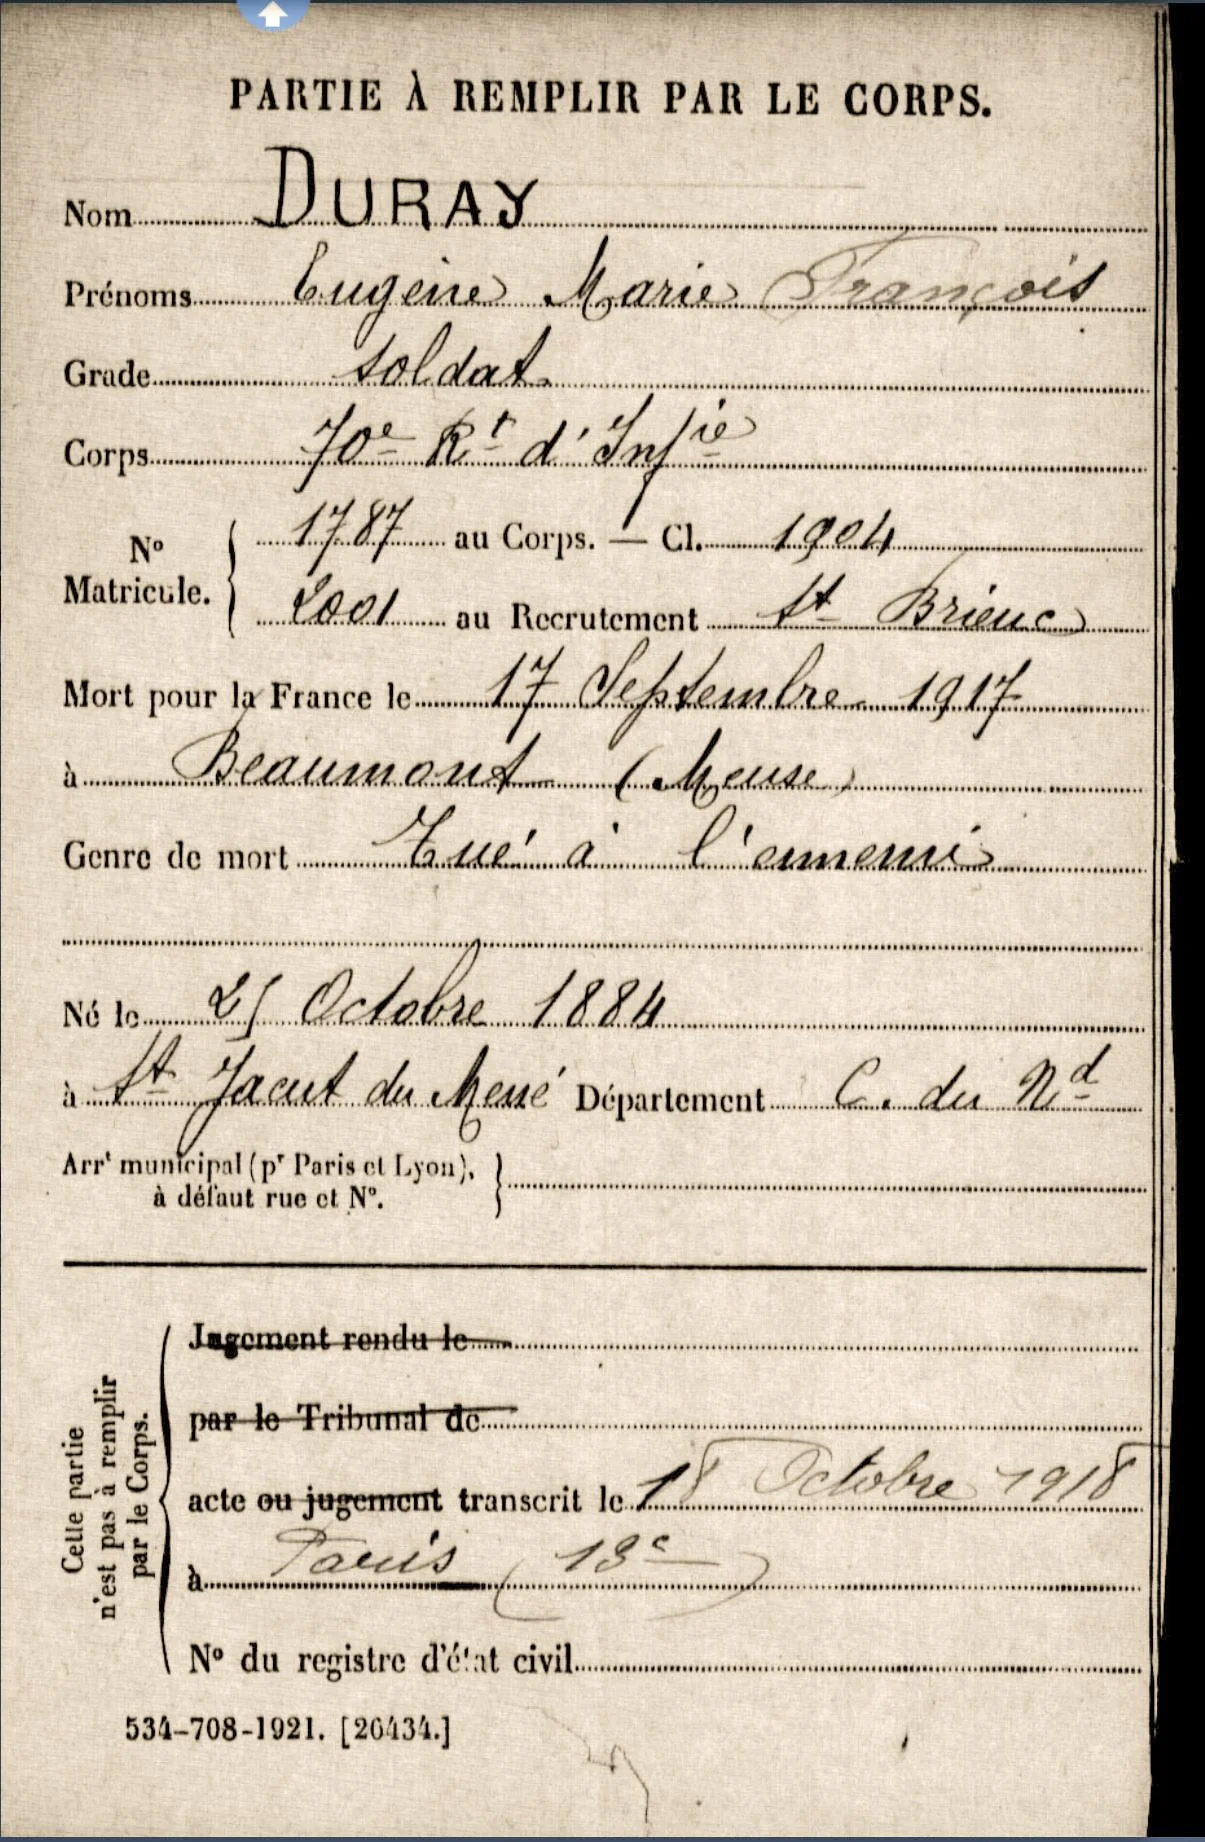 PARTIE À REMPLIR PAR LE CORPS.
Nom DURAY
Prénoms Eugène Marie François
Grade soldat
Corps 70e Rt d'Infie
No Matricule. { 1787 au Corps. — Cl. 1904
2001 au Recrutement St Brieuc
Mort pour la France le 17 Septembre 1917
à Beaumont (Meuse)
Genre de mort Tué à l'ennemi
Né le 25 Octobre 1884
à St Jacut du Mené Département C. du Nd
Arrt municipal (pr Paris et Lyon), }
à défaut rue et No.
Cette partie
n'est pas à remplir
par le Corps.
Jugement rendu le
par le Tribunal de
acte ou jugement transcrit le 18 Octobre 1918
à Paris (13e)
No du registre d'état civil
534-708-1921. [26434.]